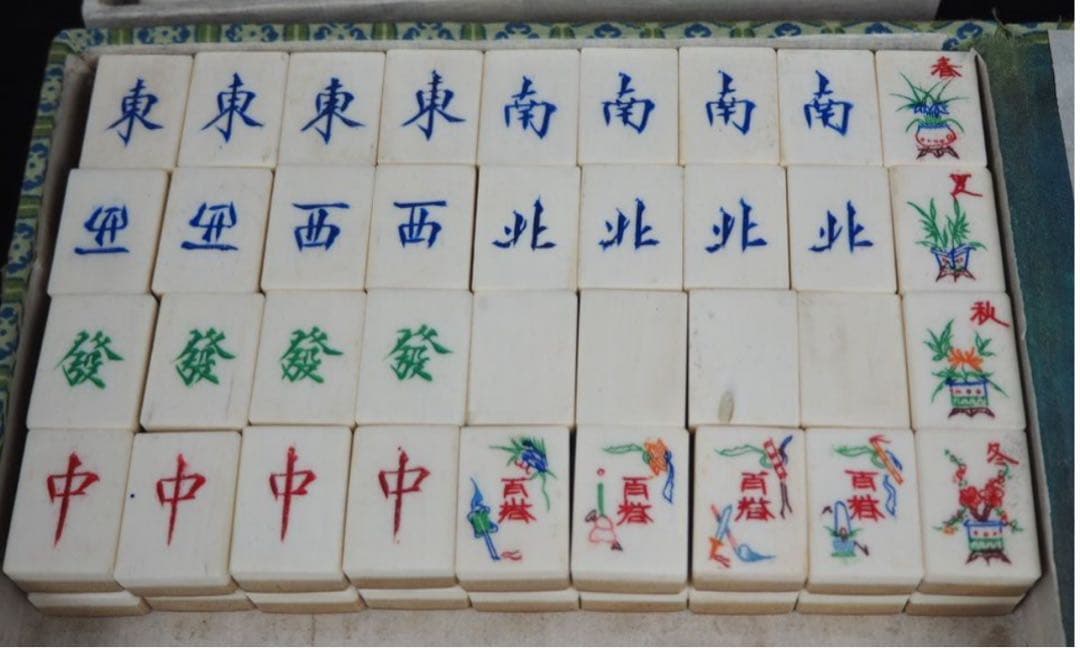 東 東 東 東 南 南 南 南 春
西 西 西 西 北 北 北 北 夏
發 發 發 發 秋
中 中 中 中 百搭 百搭 百搭 百搭 冬